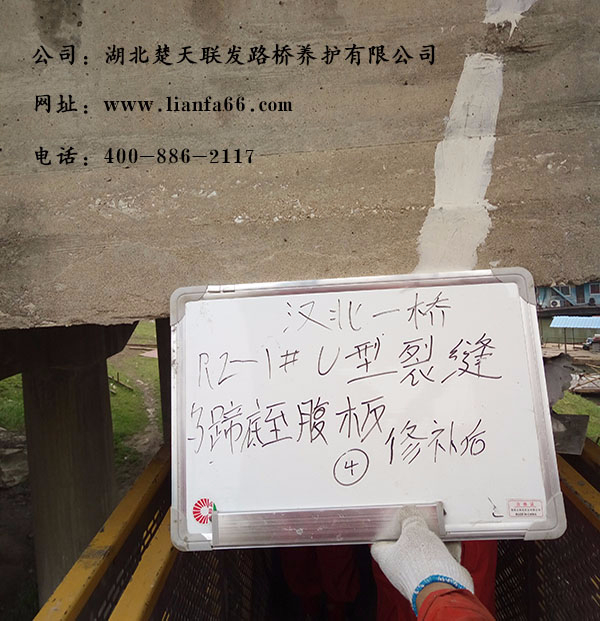 公司：湖北楚天联发路桥养护有限公司
网址：www.lianfa66.com
电话：400-886-2117
汉北一桥
R2-1# U型裂缝
马蹄底至腹板
④ 修补后